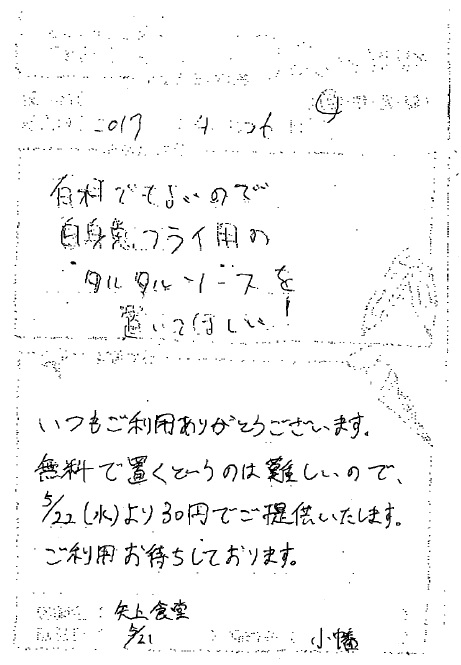 2013 4 26
有料でもよいので
白身魚フライ用の
タルタルソースを
置いてほしい!
いつもご利用ありがとうございます。
無料で置くというのは難しいので、
5/22(水)より30円でご提供いたします。
ご利用お待ちしております。
矢上食堂
5/21 小幡